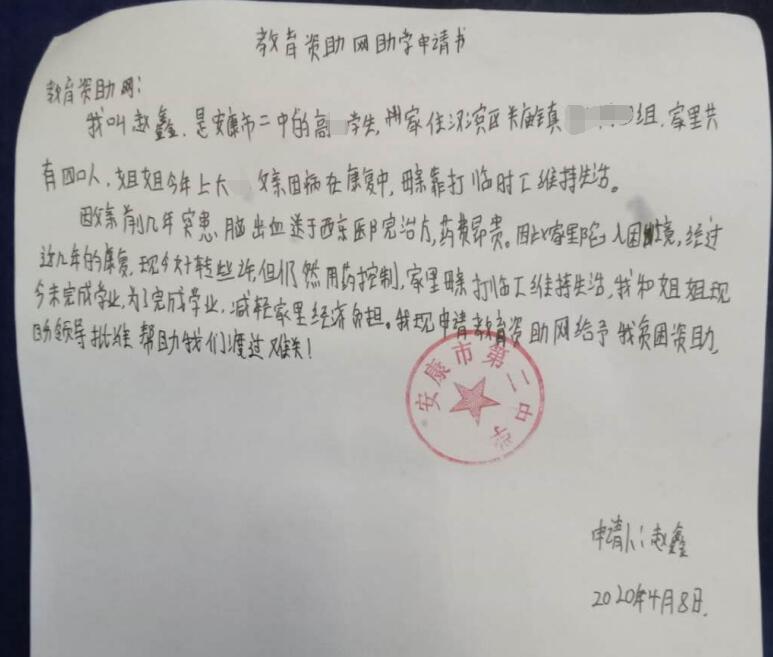 教育资助网助学申请书
教育资助网:
我叫赵鑫,是安康市二中的高 学生,家住汉滨区关庙镇 组,家里共
有四口人,姐姐今年上大 父亲因病在康复中,母亲靠打临时工维持生活。
因父亲前几年突患脑出血送于西京医院治疗,药费昂贵。因此家里陷入困境,经过
近几年的康复,现今好转些许,但仍然用药控制,家里母亲打临工维持生活,我和姐姐现
今未完成学业,为了完成学业,减轻家里经济负担。我现申请教育资助网给予我贫困资助,
领导批准帮助我们渡过难关!
安康市第二中学
申请人:赵鑫
2020年4月8日.